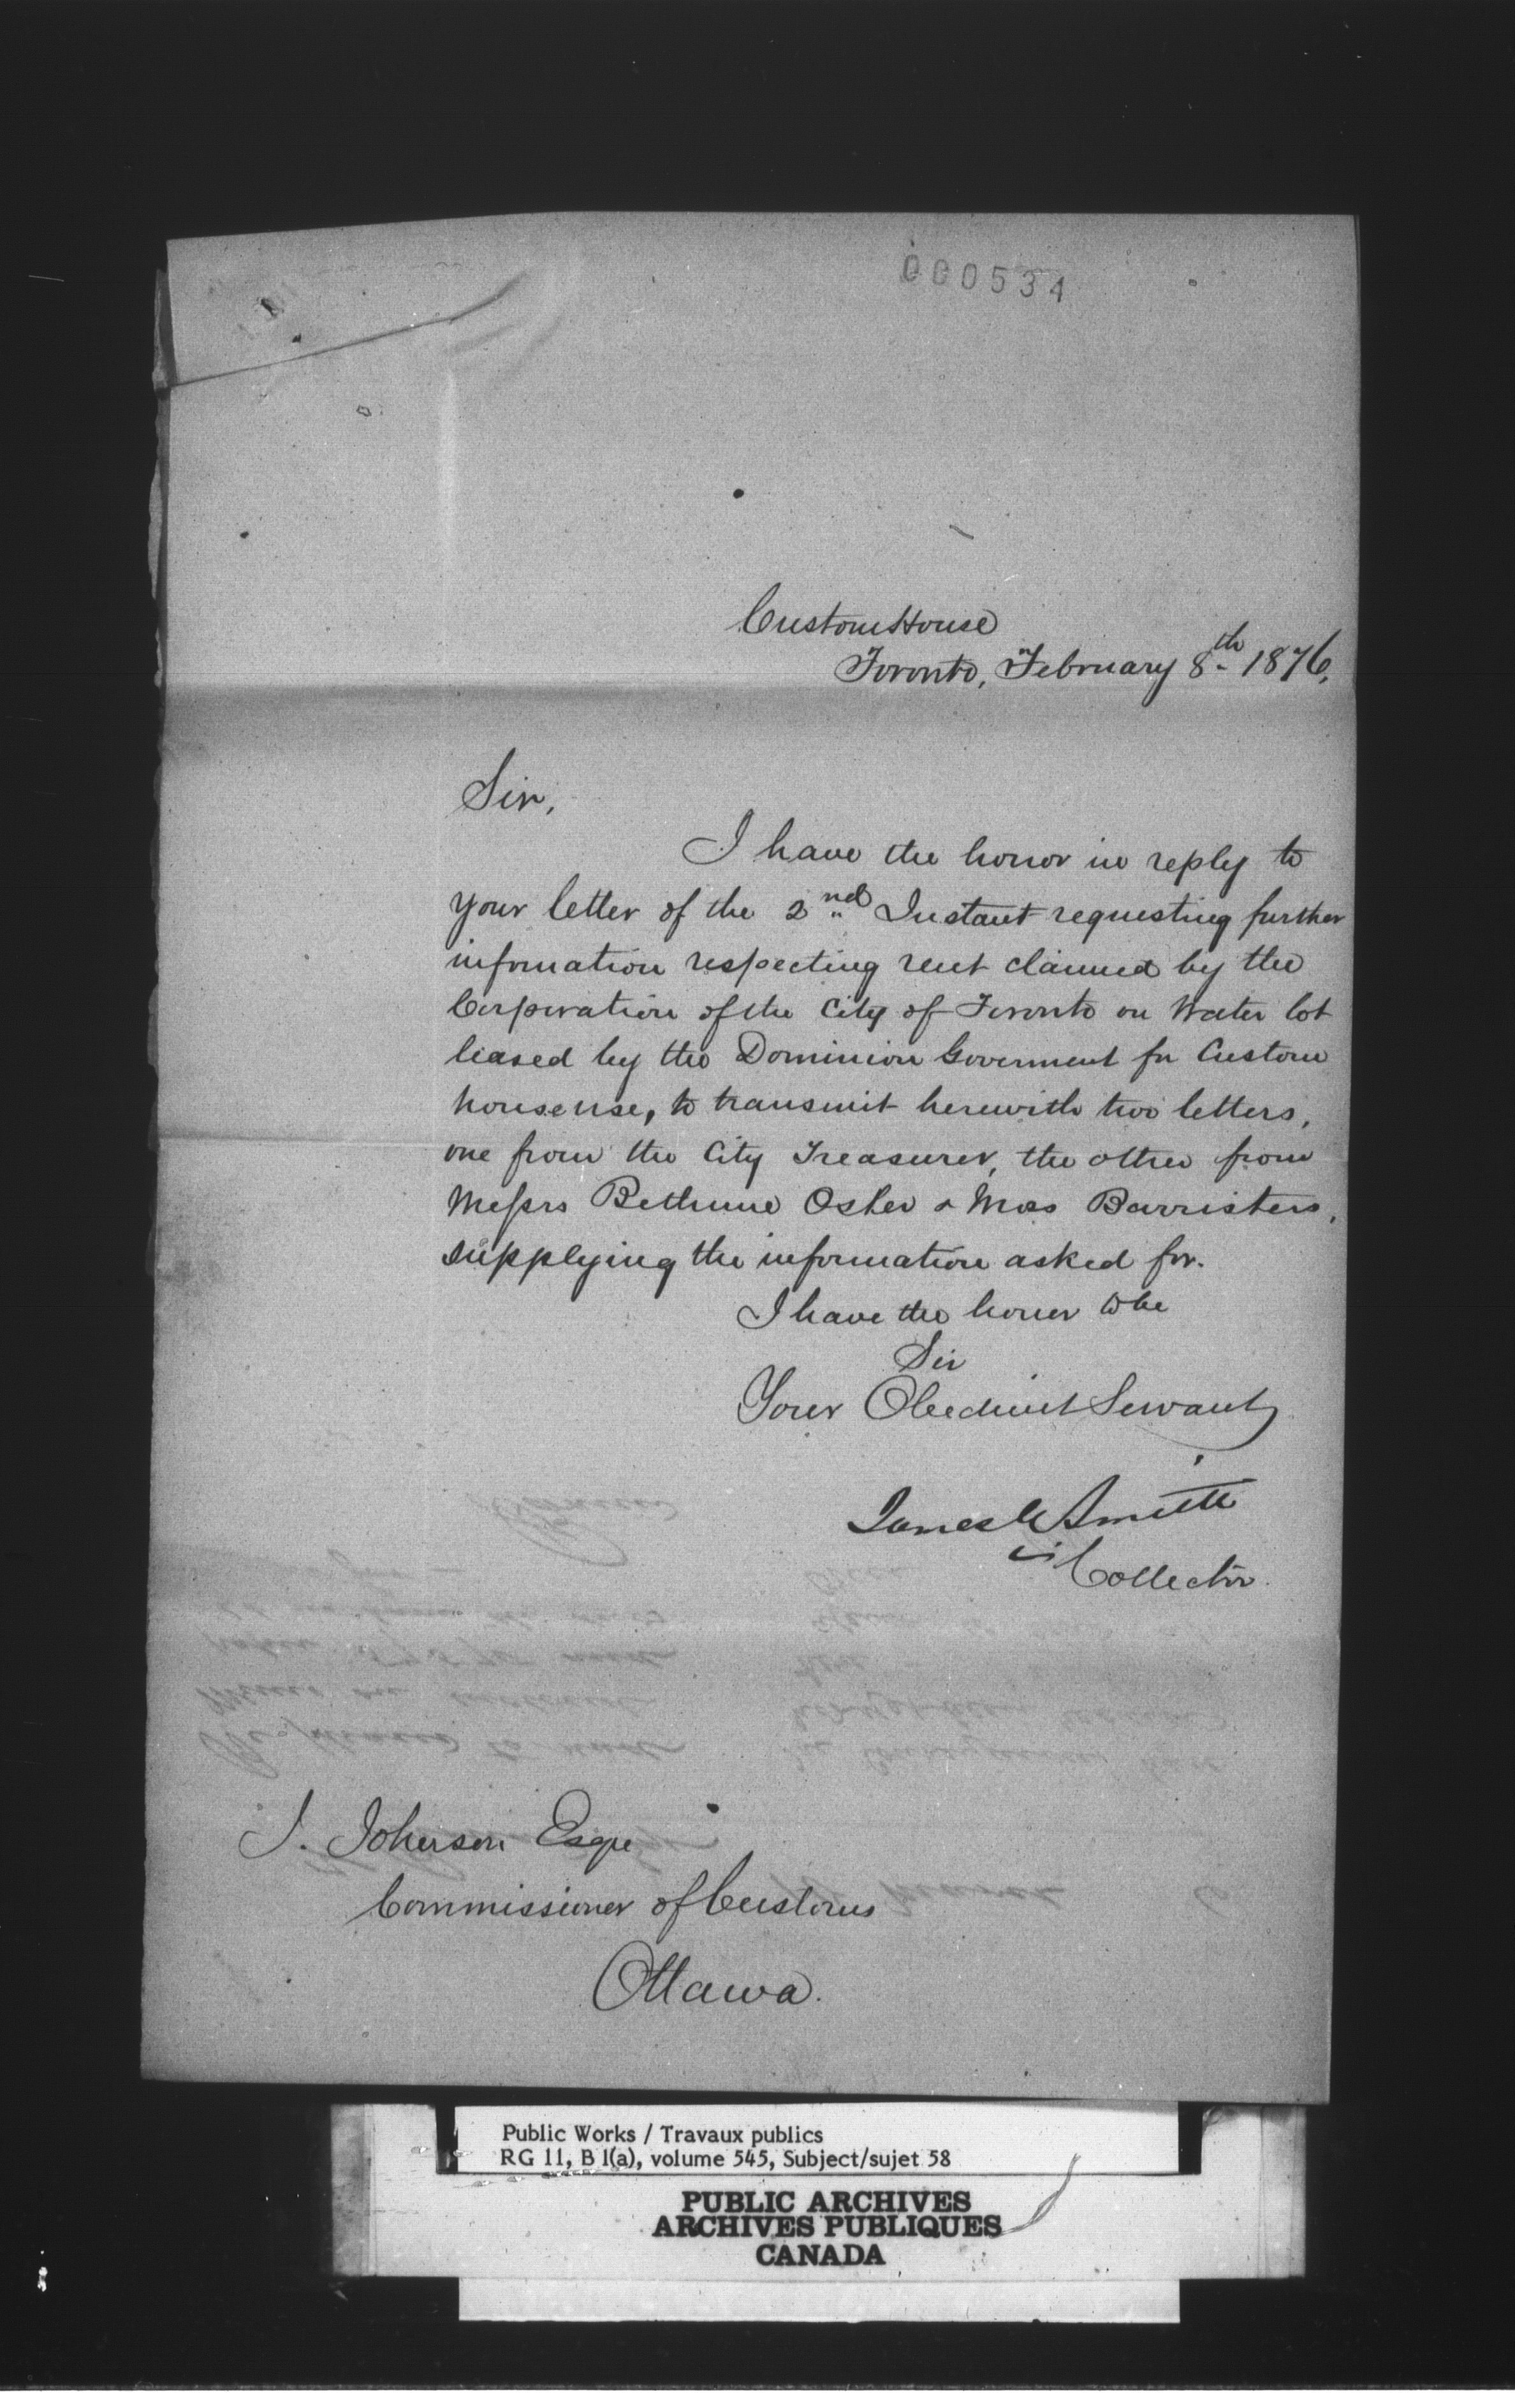 000534
Custom House
Toronto, February 8th 1876,
Sir,
I have the honor in reply to
your letter of the 2nd Instant requesting further
information respecting rent claimed by the
Corporation of the City of Toronto on Water lot
leased by the Dominion Goverment for Custom
house use, to transmit herewith two letters,
one from the City Treasurer, the other from
Messrs Bethune Osler & Moss Barristers,
supplying the information asked for.
I have the honor to be
Sir
Your Obedient Servant
James Smith
Collector.
J. Johnson Esqre
Commissioner of Customs
Ottawa.
Public Works / Travaux publics
RG 11, B 1(a), volume 545, Subject/sujet 58
PUBLIC ARCHIVES
ARCHIVES PUBLIQUES
CANADA